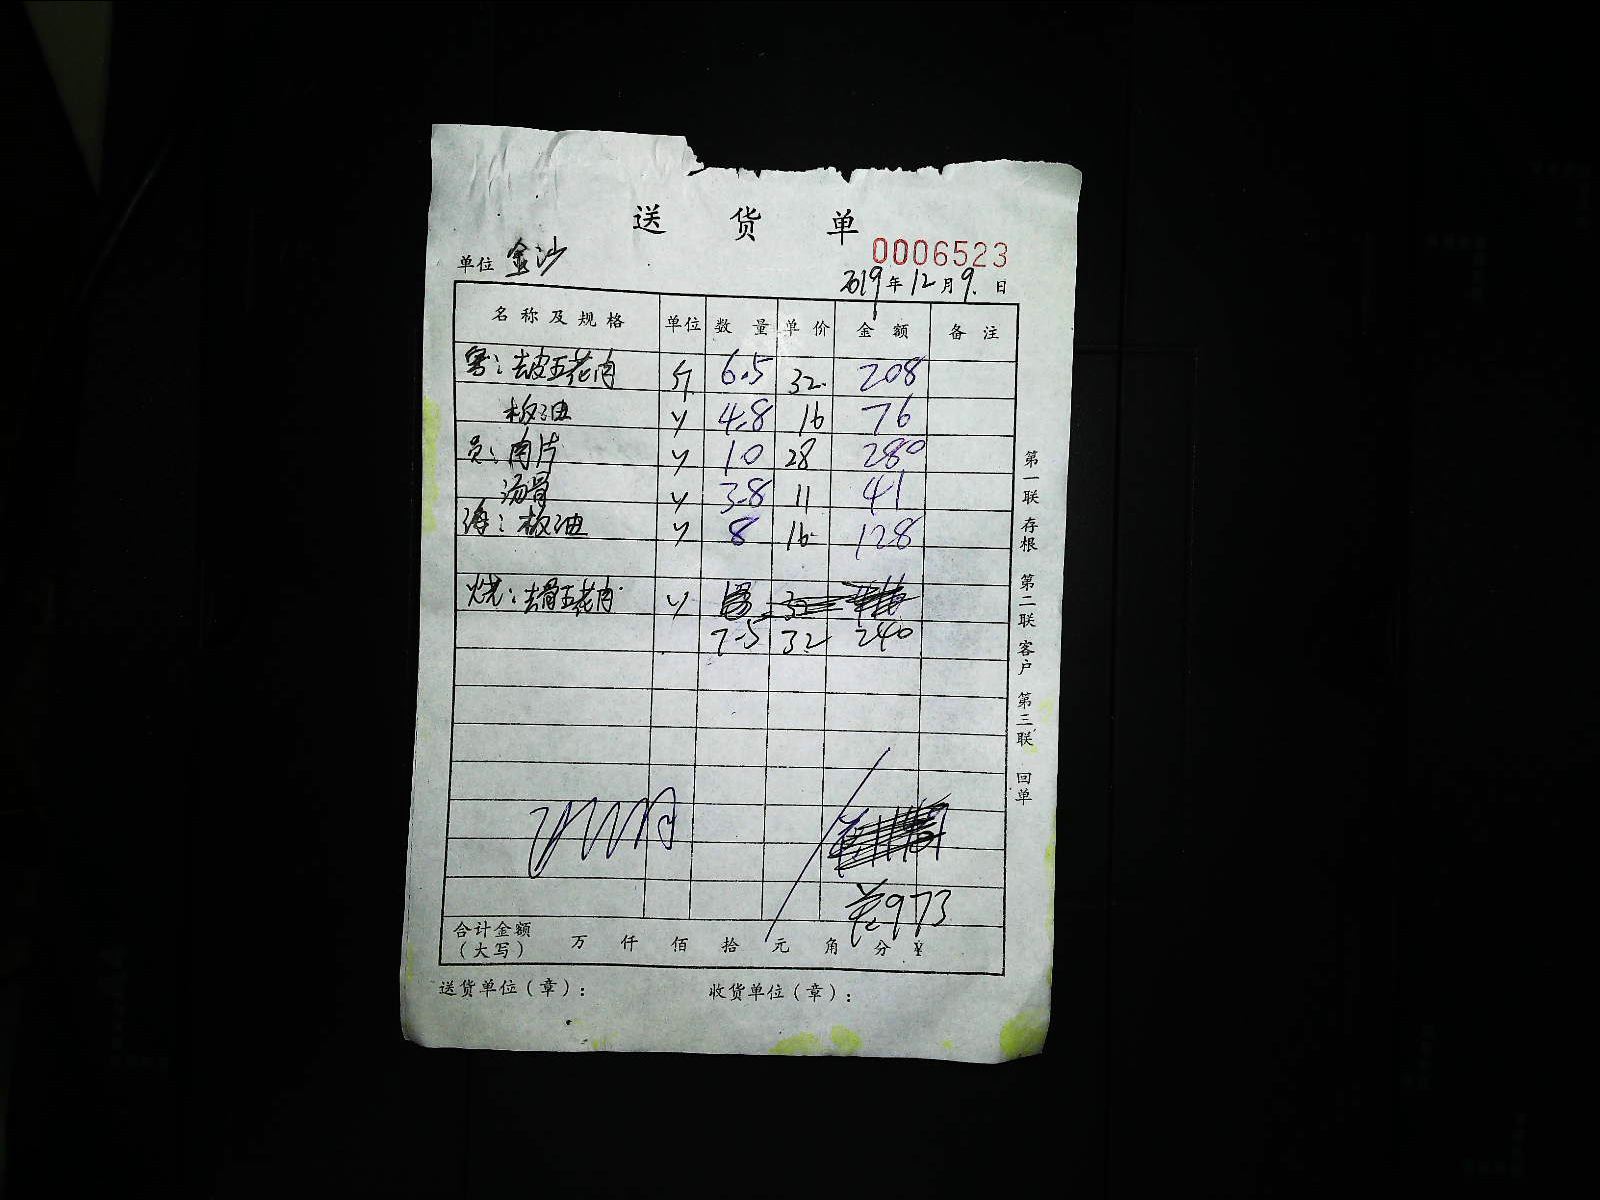 送货单
0006523
单位 金沙
2019年12月9.日
名称及规格 单位 数量 单价 金额 备注
客：去皮五花肉 斤 6.5 32. 208
板油 〃 4.8 16 76
员：肉片 〃 10 28 280
汤骨 〃 3.8 11 41
海：板油 〃 8 16. 128
烧：去骨五花肉 〃
7.5 32 240
¥973
合计金额（大写） 万 仟 佰 拾 元 角 分 ¥
送货单位（章）： 收货单位（章）：
第一联 存根 第二联 客户 第三联 回单